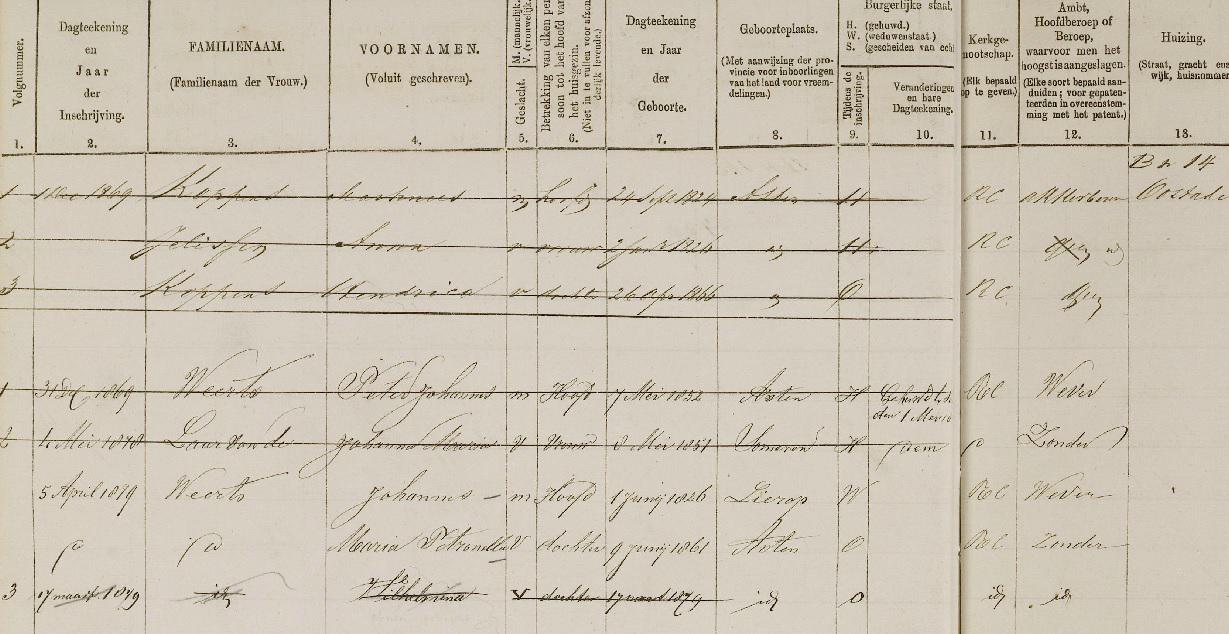 Volgnummer.
1.
Dagteekening
en
Jaar
der
Inschrijving.
2.
FAMILIENAAM.
(Familienaam der Vrouw.)
3.
VOORNAMEN.
(Voluit geschreven).
4.
Geslacht. M. (mannelijk.) V. (vrouwelijk.)
5.
Betrekking van elken per-
soon tot het hoofd van
het huisgezin.
(Niet in te vullen voor afzon-
derlijk levende.)
6.
Dagteekening
en Jaar
der
Geboorte.
7.
Geboorteplaats.
(Met aanwijzing der pro-
vincie voor inboorlingen
van het land voor vreem-
delingen.)
8.
Burgerlijke staat,
H. (gehuwd.)
W. (weduwenstaat.)
S. (gescheiden van echt
Tijdens de
inschrijving.
9.
Veranderingen
en hare
Dagteekening.
10.
Kerkge-
nootschap.
(Elk bepaald
op te geven.)
11.
Ambt,
Hoofdberoep of
Beroep,
waarvoor men het
hoogst is aangeslagen.
(Elke soort bepaald aan-
duiden; voor gepaten-
teerden in overeenstem-
ming met het patent.)
12.
Huizing.
(Straat, gracht enz
wijk, huisnommer
13.
B n 14
1 1 Dec 1869 Koppens Martinus m hoofd 24 Sept 1824 Asten H RC akkerbouw Oostade
2 Jelissen Anna v vrouw 2 1826 id H RC
3 Koppens Hendrica v dochter 26 Apr 1866 O RC
1 31 Dec 1869 Weerts Peter Johannes m Hoofd 7 Mei 1832 Asten H Gehuwd RC Wever
den 1 Mei
2 4 Mei 1878 Laar van de Johanna Maria V Vrouw 8 Mei 1851 Someren H idem Zonder
5 April 1879 Weerts Johannes m Hoofd 1 Junij 1826 Lierop W RC Wever
Maria Petronella V dochter 9 Junij 1861 Asten O RC Zonder
3 17 maart 1879 id Wilhelmina V dochter 17 maart 1879 id O id id